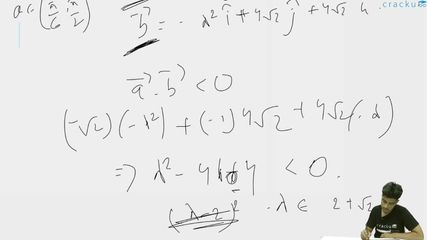 α ∈ (π/6, π/2)
b⃗ = - λ² î + 4√2 ĵ + 4√2 k
cracku
a⃗ · b⃗ < 0
(-√2)(-λ²) + (-1) 4√2 + 4√2(-λ)
⇒ λ² - 4λ + 4 < 0.
(λ-2)² · λ ∈ 2 + √2